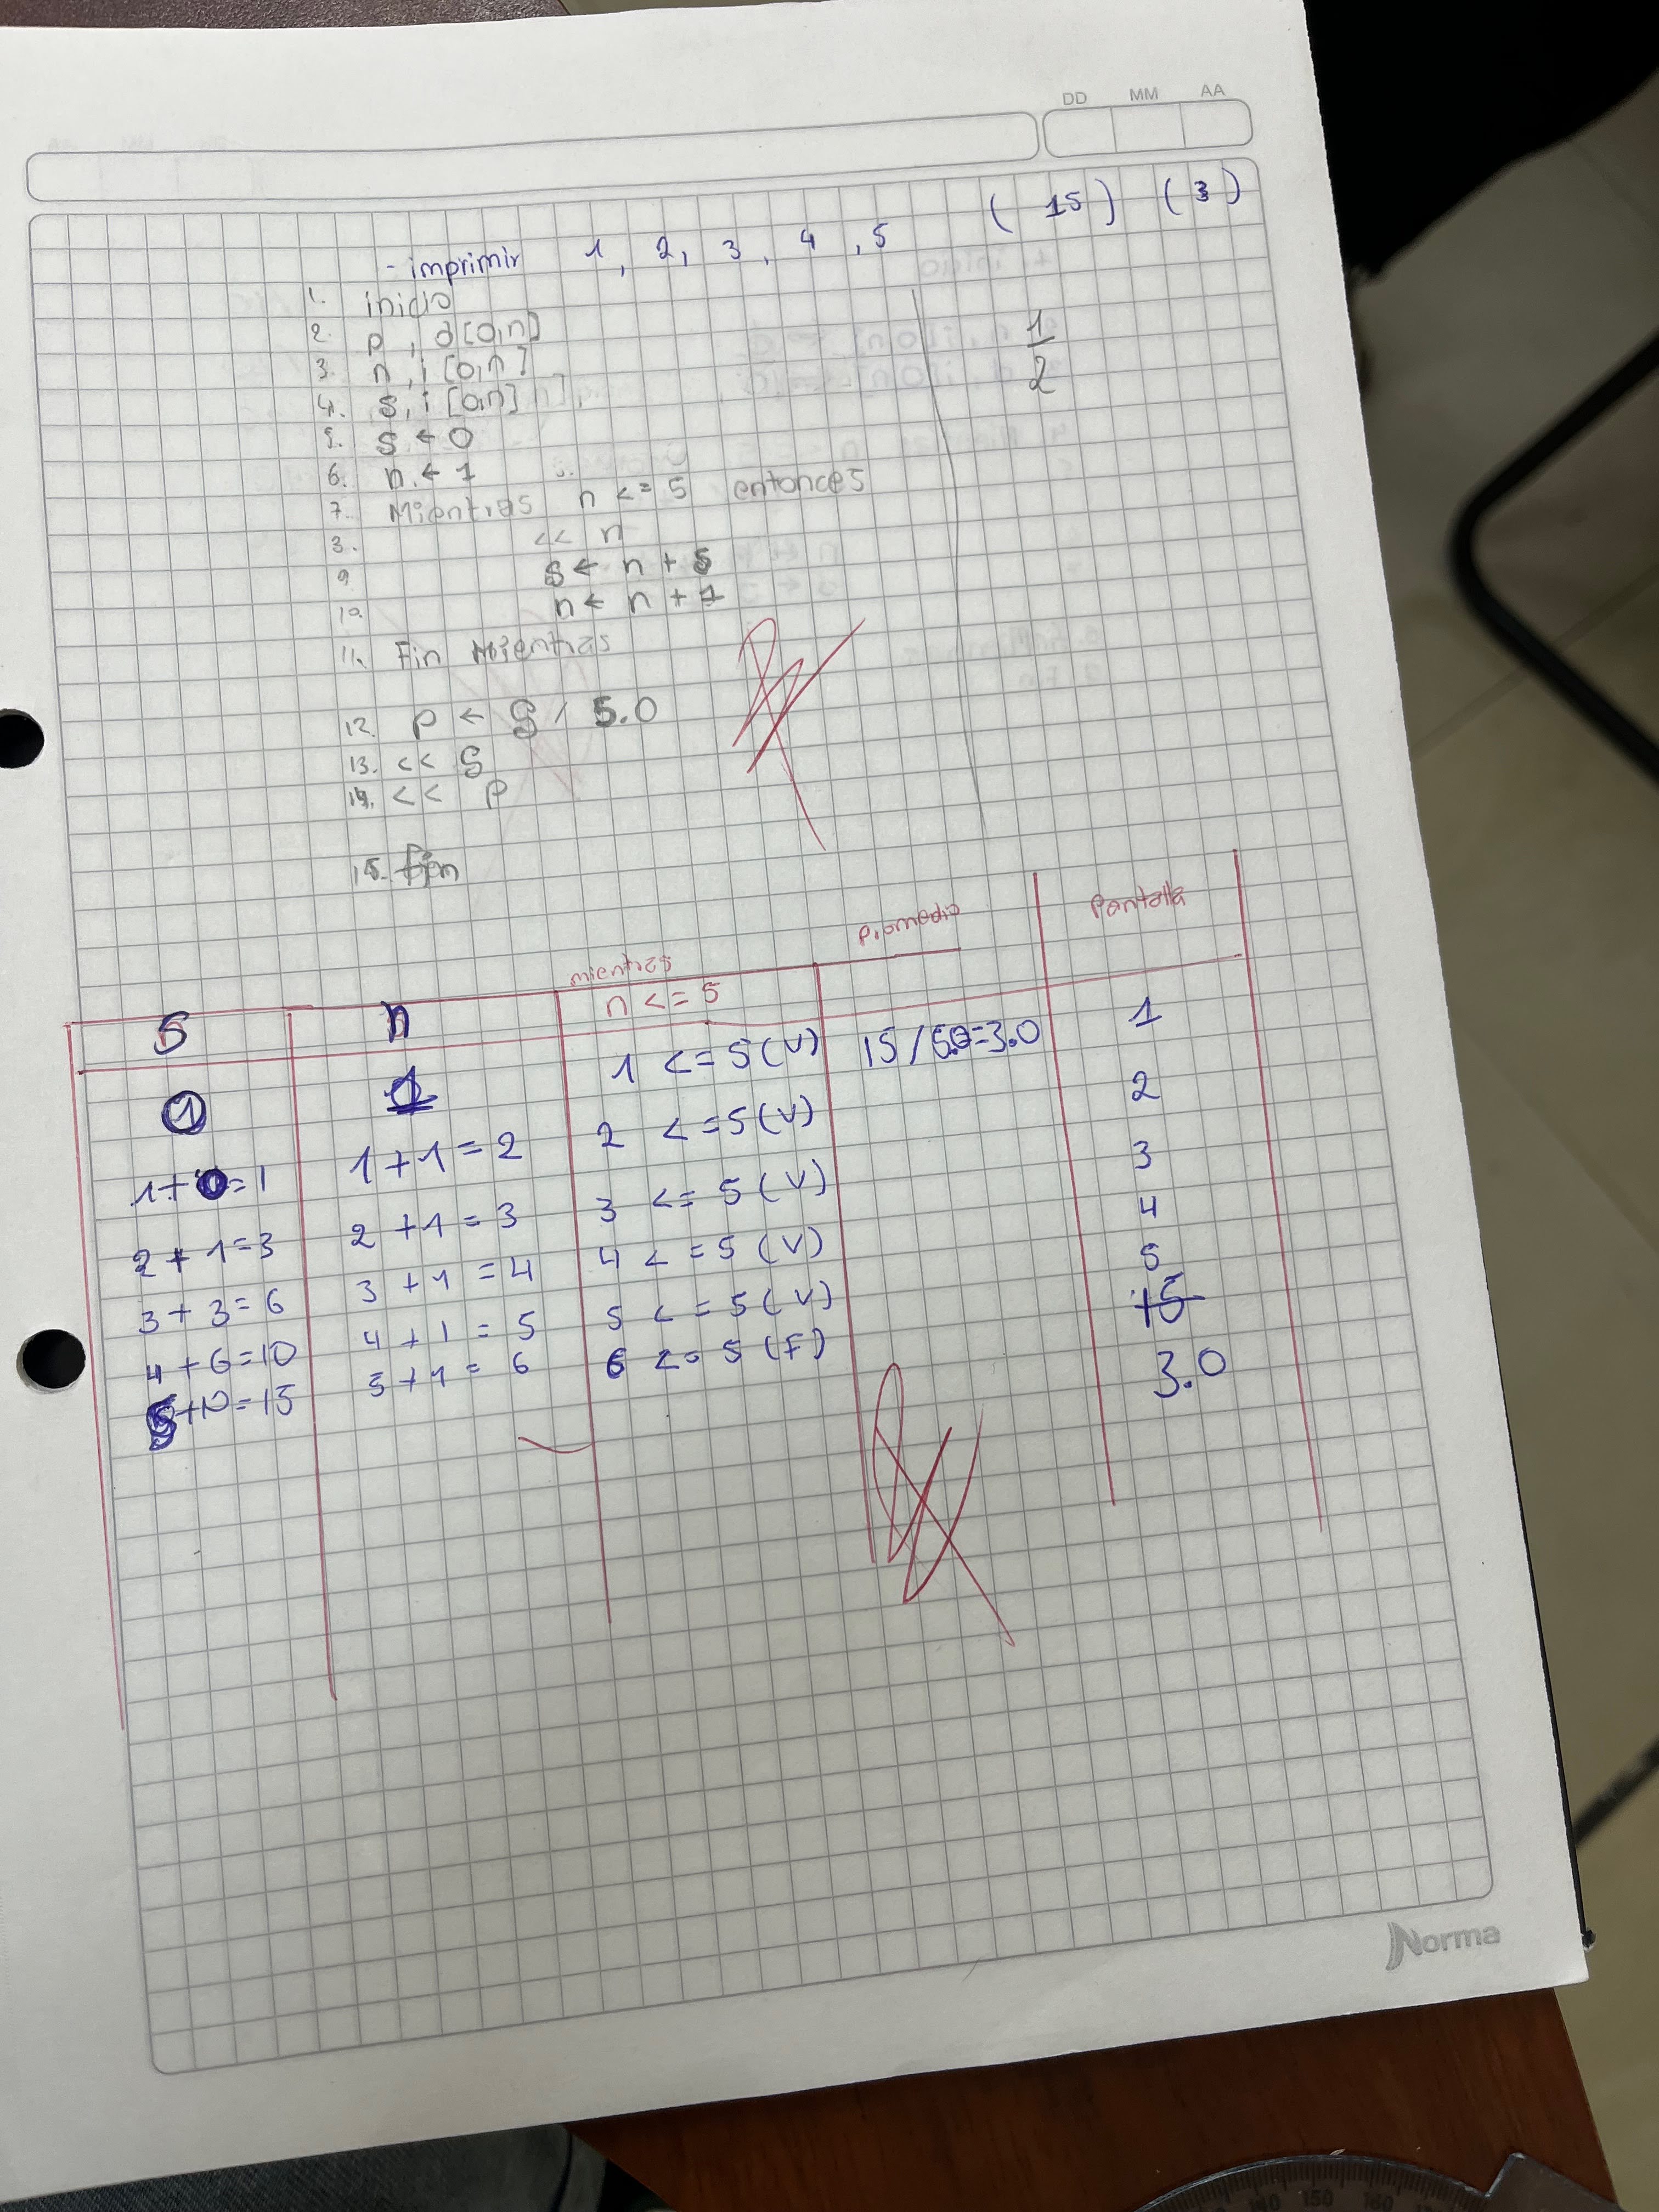 DD MM AA
( 15 ) ( 3 )
- imprimir 1, 2, 3, 4, 5
1. inicio
2. p, d[0,n]
3. n, i [0,n]
4. s, i [0,n]
5. s ← 0
6. n ← 1
7. Mientras n <= 5 entonces
8. << n
9 s ← n + s
10. n ← n + 1
11. Fin Mientras
12. p ← S / 5.0
13. << S
14. << p
15. Fin
1
2
S n mientras n <= 5 Promedio Pantalla
1 1 <= 5 (V) 15 / 5.0 = 3.0 1
1 + 0 = 1 1 + 1 = 2 2 <= 5 (V) 2
2 + 1 = 3 2 + 1 = 3 3 <= 5 (V) 3
3 + 3 = 6 3 + 1 = 4 4 <= 5 (V) 4
4 + 6 = 10 4 + 1 = 5 5 <= 5 (V) 5
5 + 10 = 15 5 + 1 = 6 6 <= 5 (F) 15
3.0
Norma
140 150 160